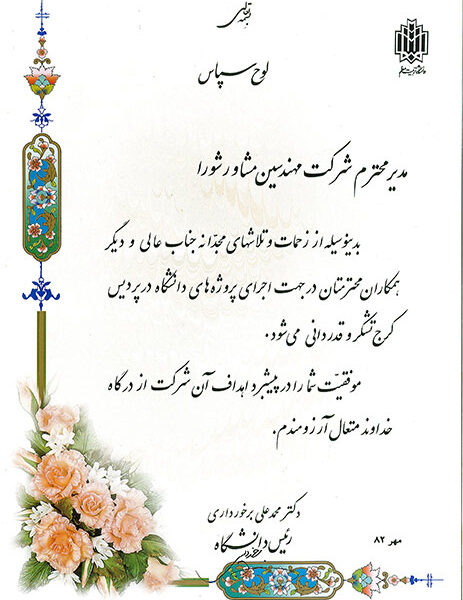 بسمه تعالی
دانشگاه تربیت معلم
لوح سپاس
مدیر محترم شرکت مهندسین مشاور شورا
بدینوسیله از زحمات و تلاشهای مجدّانه جناب عالی و دیگر
همکاران محترمتان در جهت اجرای پروژه های دانشگاه در پردیس
کرج تشکر و قدردانی می شود.
موفقیّت شما را در پیشبرد اهداف آن شرکت از درگاه
خداوند متعال آرزومندم.
دکتر محمدعلی برخورداری
رئیس دانشگاه
مهر ۸۲